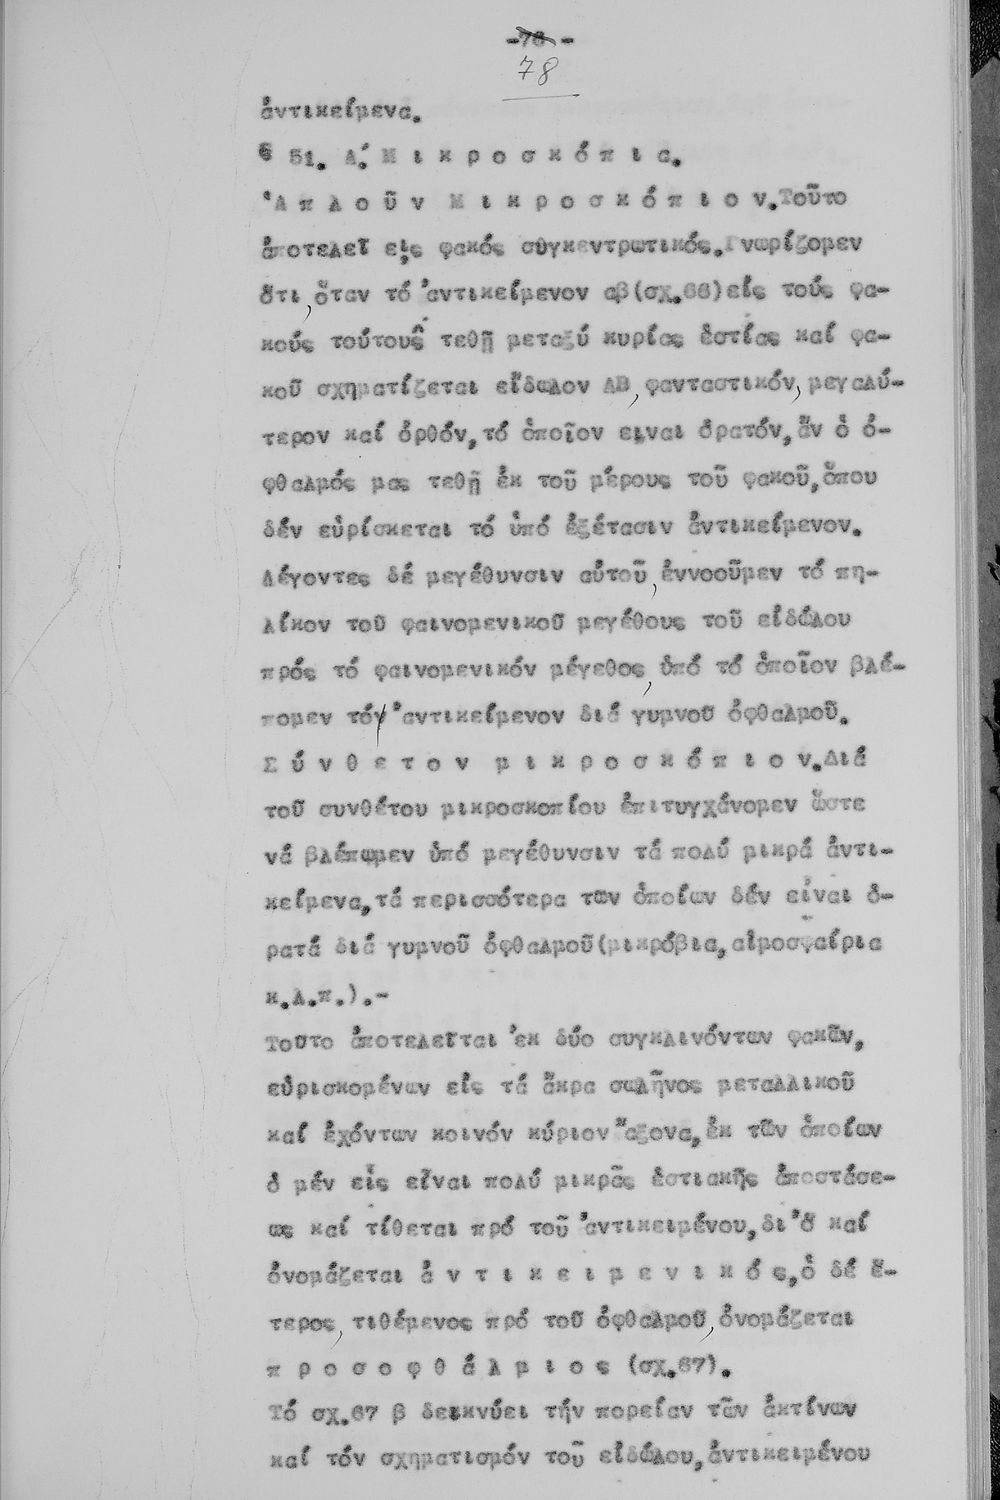 78
ἀντικείμενα.
§ 51. Α΄. Μ ι κ ρ ο σ κ ό π ι α.
Ἁ π λ ο ῦ ν  Μ ι κ ρ ο σ κ ό π ι ο ν. Τοῦτο
ἀποτελεῖ εἷς φακός συγκεντρωτικός. Γνωρίζομεν
ὅτι, ὅταν τό ἀντικείμενον αβ (σχ.66) εἰς τούς φα-
κούς τούτους τεθῇ μεταξύ κυρίας ἑστίας καί φα-
κοῦ σχηματίζεται εἴδωλον ΑΒ, φανταστικόν, μεγαλύ-
τερον καί ὀρθόν, τό ὁποῖον ειναι ὁρατόν, ἄν ὁ ὀ-
φθαλμός μας τεθῇ ἐκ τοῦ μέρους τοῦ φακοῦ, ὅπου
δέν εὑρίσκεται τό ὑπό ἐξέτασιν ἀντικείμενον.
Λέγοντες δέ μεγέθυνσιν αὐτοῦ, ἐννοοῦμεν τό πη-
λίκον τοῦ φαινομενικοῦ μεγέθους τοῦ εἰδώλου
πρός τό φαινομενικόν μέγεθος, ὑπό τό ὁποῖον βλέ-
πομεν τό ἀντικείμενον διά γυμνοῦ ὀφθαλμοῦ.
Σ ύ ν θ ε τ ο ν  μ ι κ ρ ο σ κ ό π ι ο ν. Διά
τοῦ συνθέτου μικροσκοπίου ἐπιτυγχάνομεν ὥστε
νά βλέπωμεν ὑπό μεγέθυνσιν τά πολύ μικρά ἀντι-
κείμενα, τά περισσότερα τῶν ὁποίων δέν εἶναι ὁ-
ρατά διά γυμνοῦ ὀφθαλμοῦ (μικρόβια, αἱμοσφαίρια
κ.λ.π.).-
Τοῦτο ἀποτελεῖται ἐκ δύο συγκλινόντων φακῶν,
εὑρισκομένων εἰς τά ἄκρα σωλῆνος μεταλλικοῦ
καί ἐχόντων κοινόν κύριον ἄξονα, ἐκ τῶν ὁποίων
ὁ μέν εἷς εἶναι πολύ μικρᾶς ἑστιακῆς ἀποστάσε-
ως καί τίθεται πρό τοῦ ἀντικειμένου, δι' ὅ καί
ὀνομάζεται ἀ ν τ ι κ ε ι μ ε ν ι κ ό ς, ὁ δέ ἕ-
τερος, τιθέμενος πρό τοῦ ὀφθαλμοῦ, ὀνομάζεται
π ρ ο σ ο φ θ ά λ μ ι ο ς (σχ.67).
Τό σχ.67 β δεικνύει τήν πορείαν τῶν ἀκτίνων
καί τόν σχηματισμόν τοῦ εἰδώλου, ἀντικειμένου